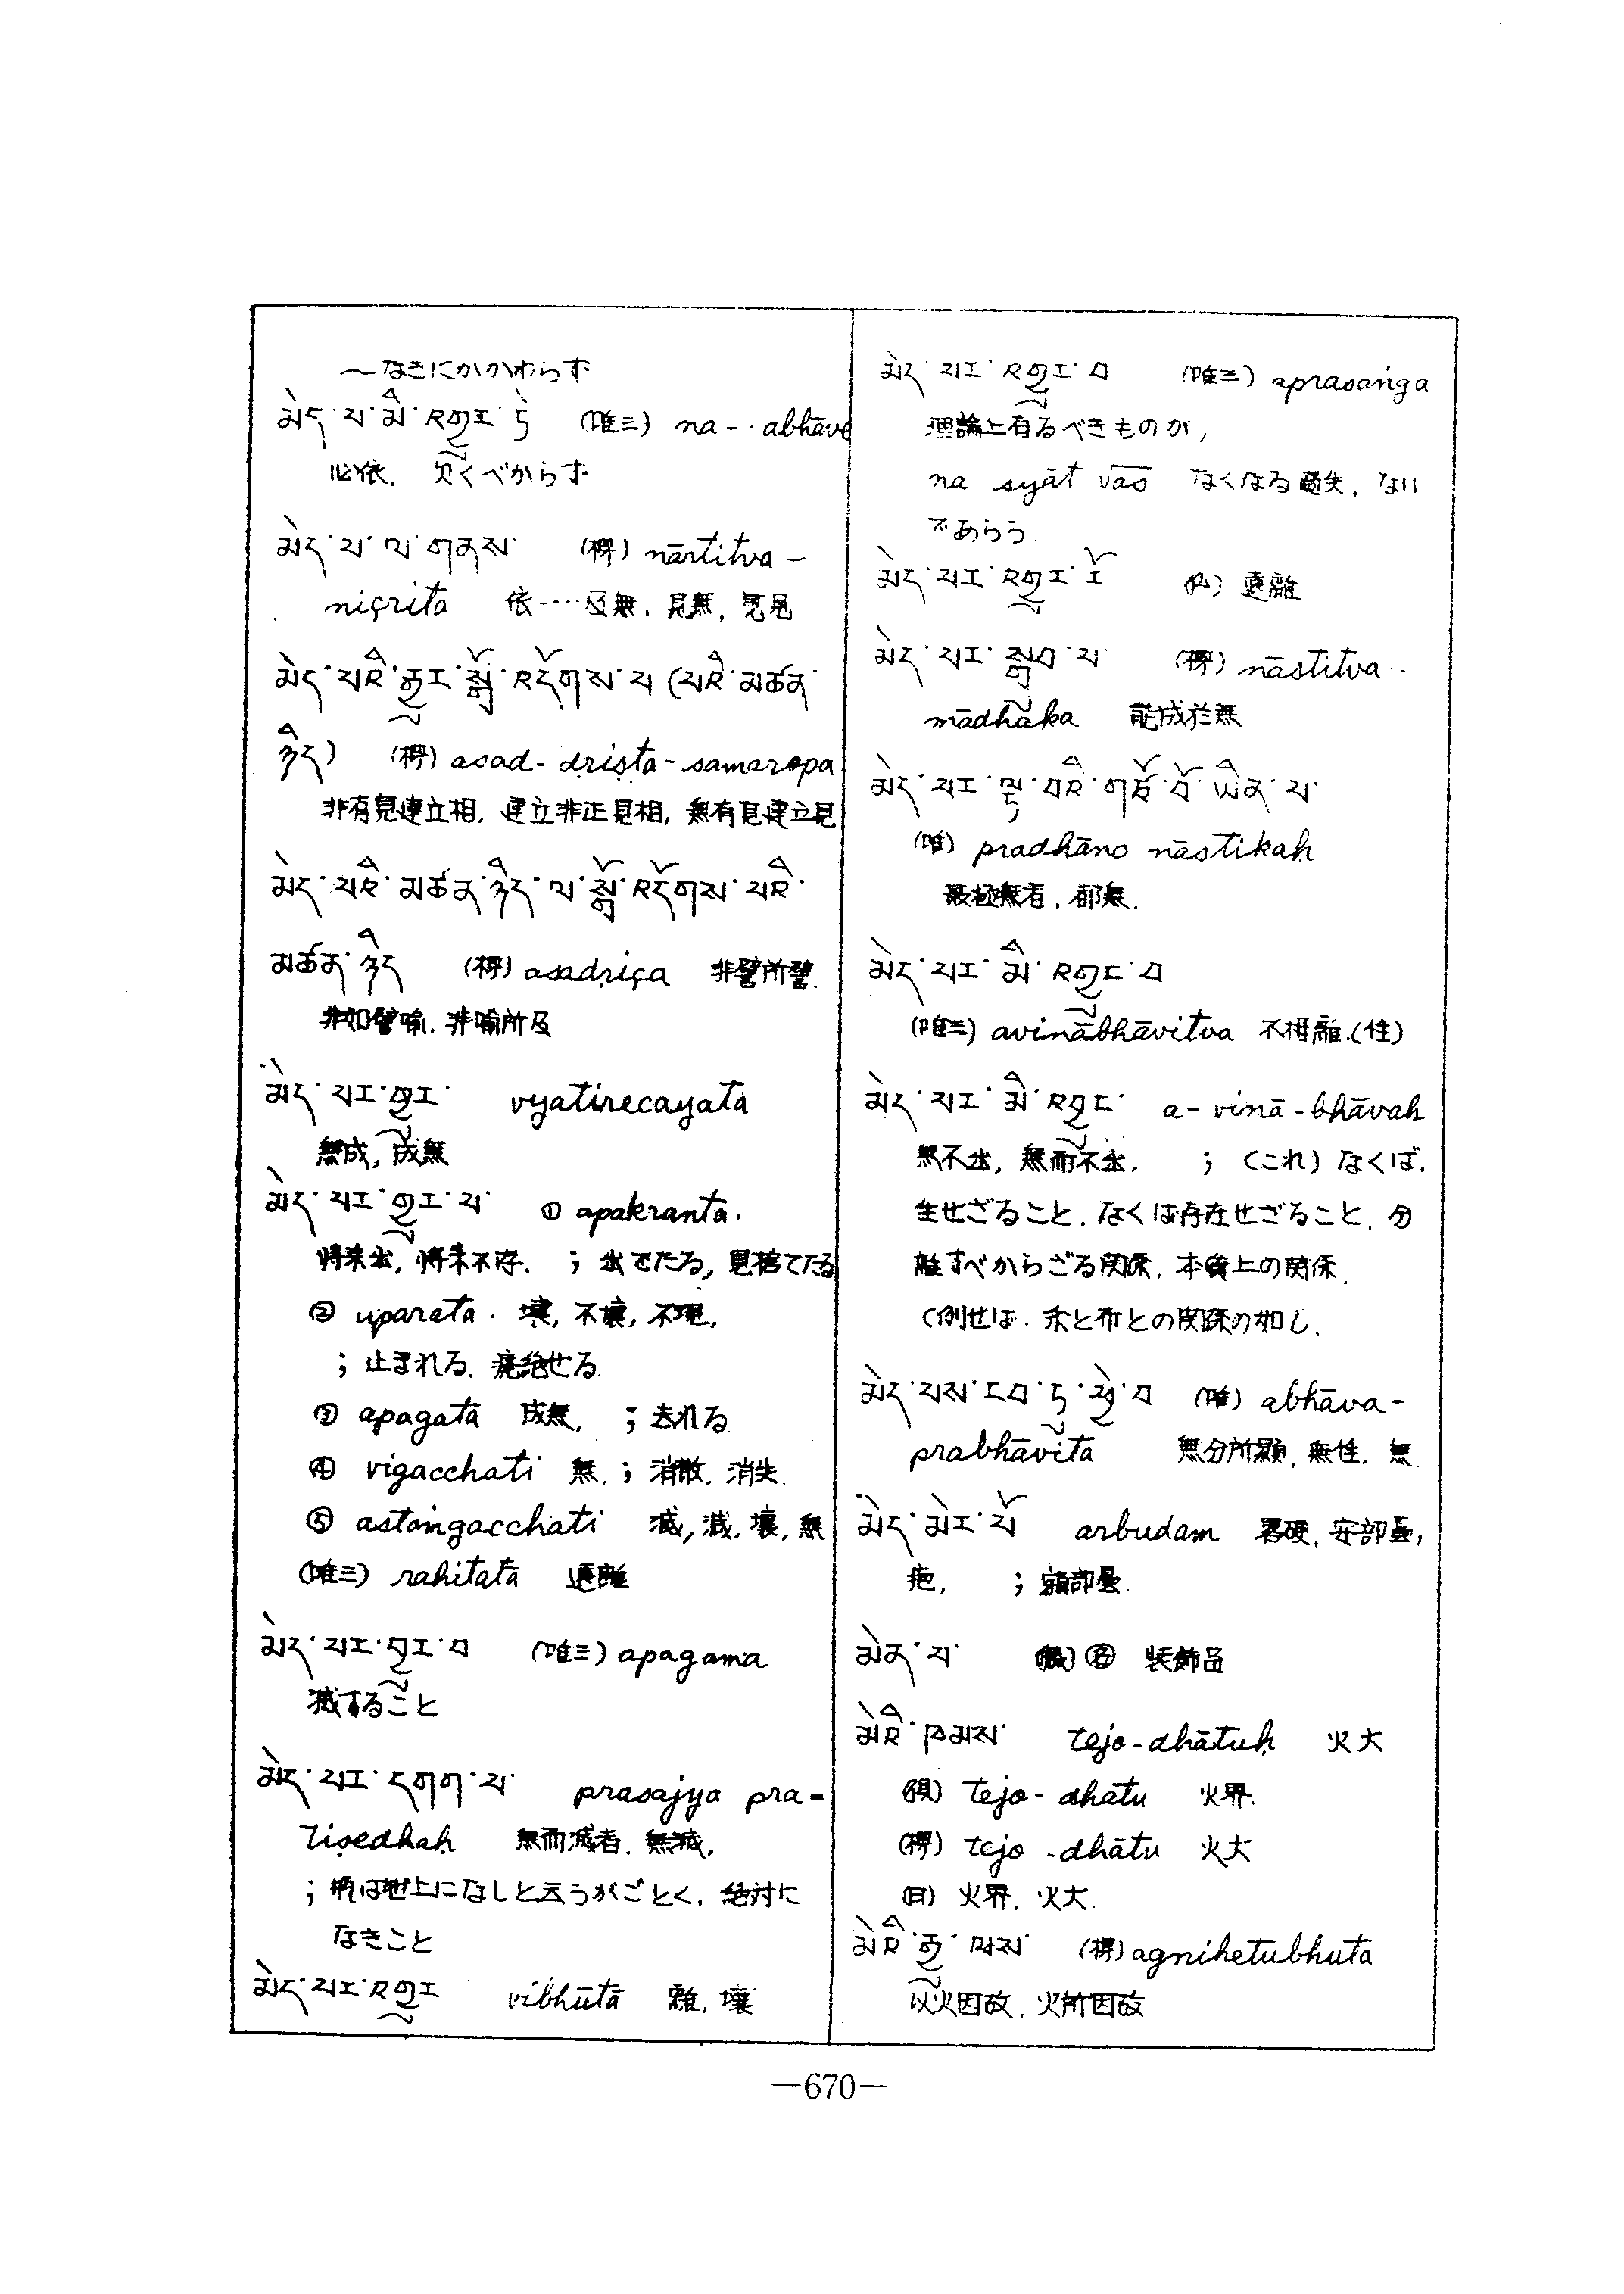 〜なきにかかわらず
མེད་པ་མི་འགྱུར་ཏེ (唯三) na-·abhāve
心依. 欠くべからず
མེད་པ་ལ་གནས་ (楞) nārtitva-
niçrita 依……及無, 見無,
མེད་པའི་རྒྱུར་སྒྲོ་འདོགས་པ (པའི་མཚན་
ཉིད) (楞) asad-driṣṭa-samaropa
非有見建立相. 建立非正見相, 無有見建立見
མེད་པའི་མཚན་ཉིད་ལ་སྒྲོ་འདོགས་པའི་
མཚན་ཉིད (楞) asadṛiça 非譬所譬.
非如譬喻. 非喻所及
མེད་པར་གྱུར་ vyatirecayata
無成, 成無
མེད་པར་གྱུར་པ་ ① apakranta.
将来出, 将来不存. ; 出でたる, 見捨てたる
② uparata. 壞, 不壞, 不現,
; 止まれる. 廃絶せる
③ apagata 成無, ; 去れる
④ vigacchati 無. ; 消散. 消失.
⑤ astaṁgacchati 滅, 滅. 壞, 無
(唯三) rahitatā 遠離
མེད་པར་གྱུར་བ (唯三) apagama
滅すること
མེད་པར་དགག་པ་ prasajya pra-
tiṣedhaḥ 無而滅者. 無滅.
; 柄は世上になしと云うがごとく. 絶対に
なきこと
མེད་པར་འགྱུར vibhūtā 離. 壞
མེད་པར་འགྱུར་བ (唯三) aprasaṅga
理論上有るべきものが,
na syāt vās なくなる過失, ない
であらう.
མེད་པར་འགྱུར་རོ 遠離
མེད་པར་སྒྲུབ་པ་ (楞) nāstitva-
mādhaka 能成於無
མེད་པར་ལྟ་བའི་གཙོ་བོ་ཡིན་པ་
(唯) pradhāno nāstikaḥ
最極無者, 都無.
མེད་པར་མི་འགྱུང་བ
(唯三) avinābhāvitva 不相離.(性)
མེད་པར་མི་འགྱུང་ a-vinā-bhāvaḥ
無不出, 無而不出. ; (これ) なくば.
生せざること. なくは存在せざること. 分
離すべからざる関係. 本質上の関係.
(例せば. 糸と布との関係の如し.
མེད་པས་རབ་ཏུ་ཕྱེ་བ (唯) abhāva-
prabhāvita 無分所顕. 無性. 無.
མེད་མེར་པོ arbudam 署硬. 安部曇,
疱, ; 額部曇.
མེན་པ་ 装飾品
མེའི་ཁམས་ tejo-dhātuḥ 火大
(倶) tejo-dhātu 火界.
(楞) tejo-dhātu 火大
(日) 火界. 火大.
མེའི་རྒྱུ་ལས་ (楞) agnihetubhuta
以火因故. 火所因故
—670—